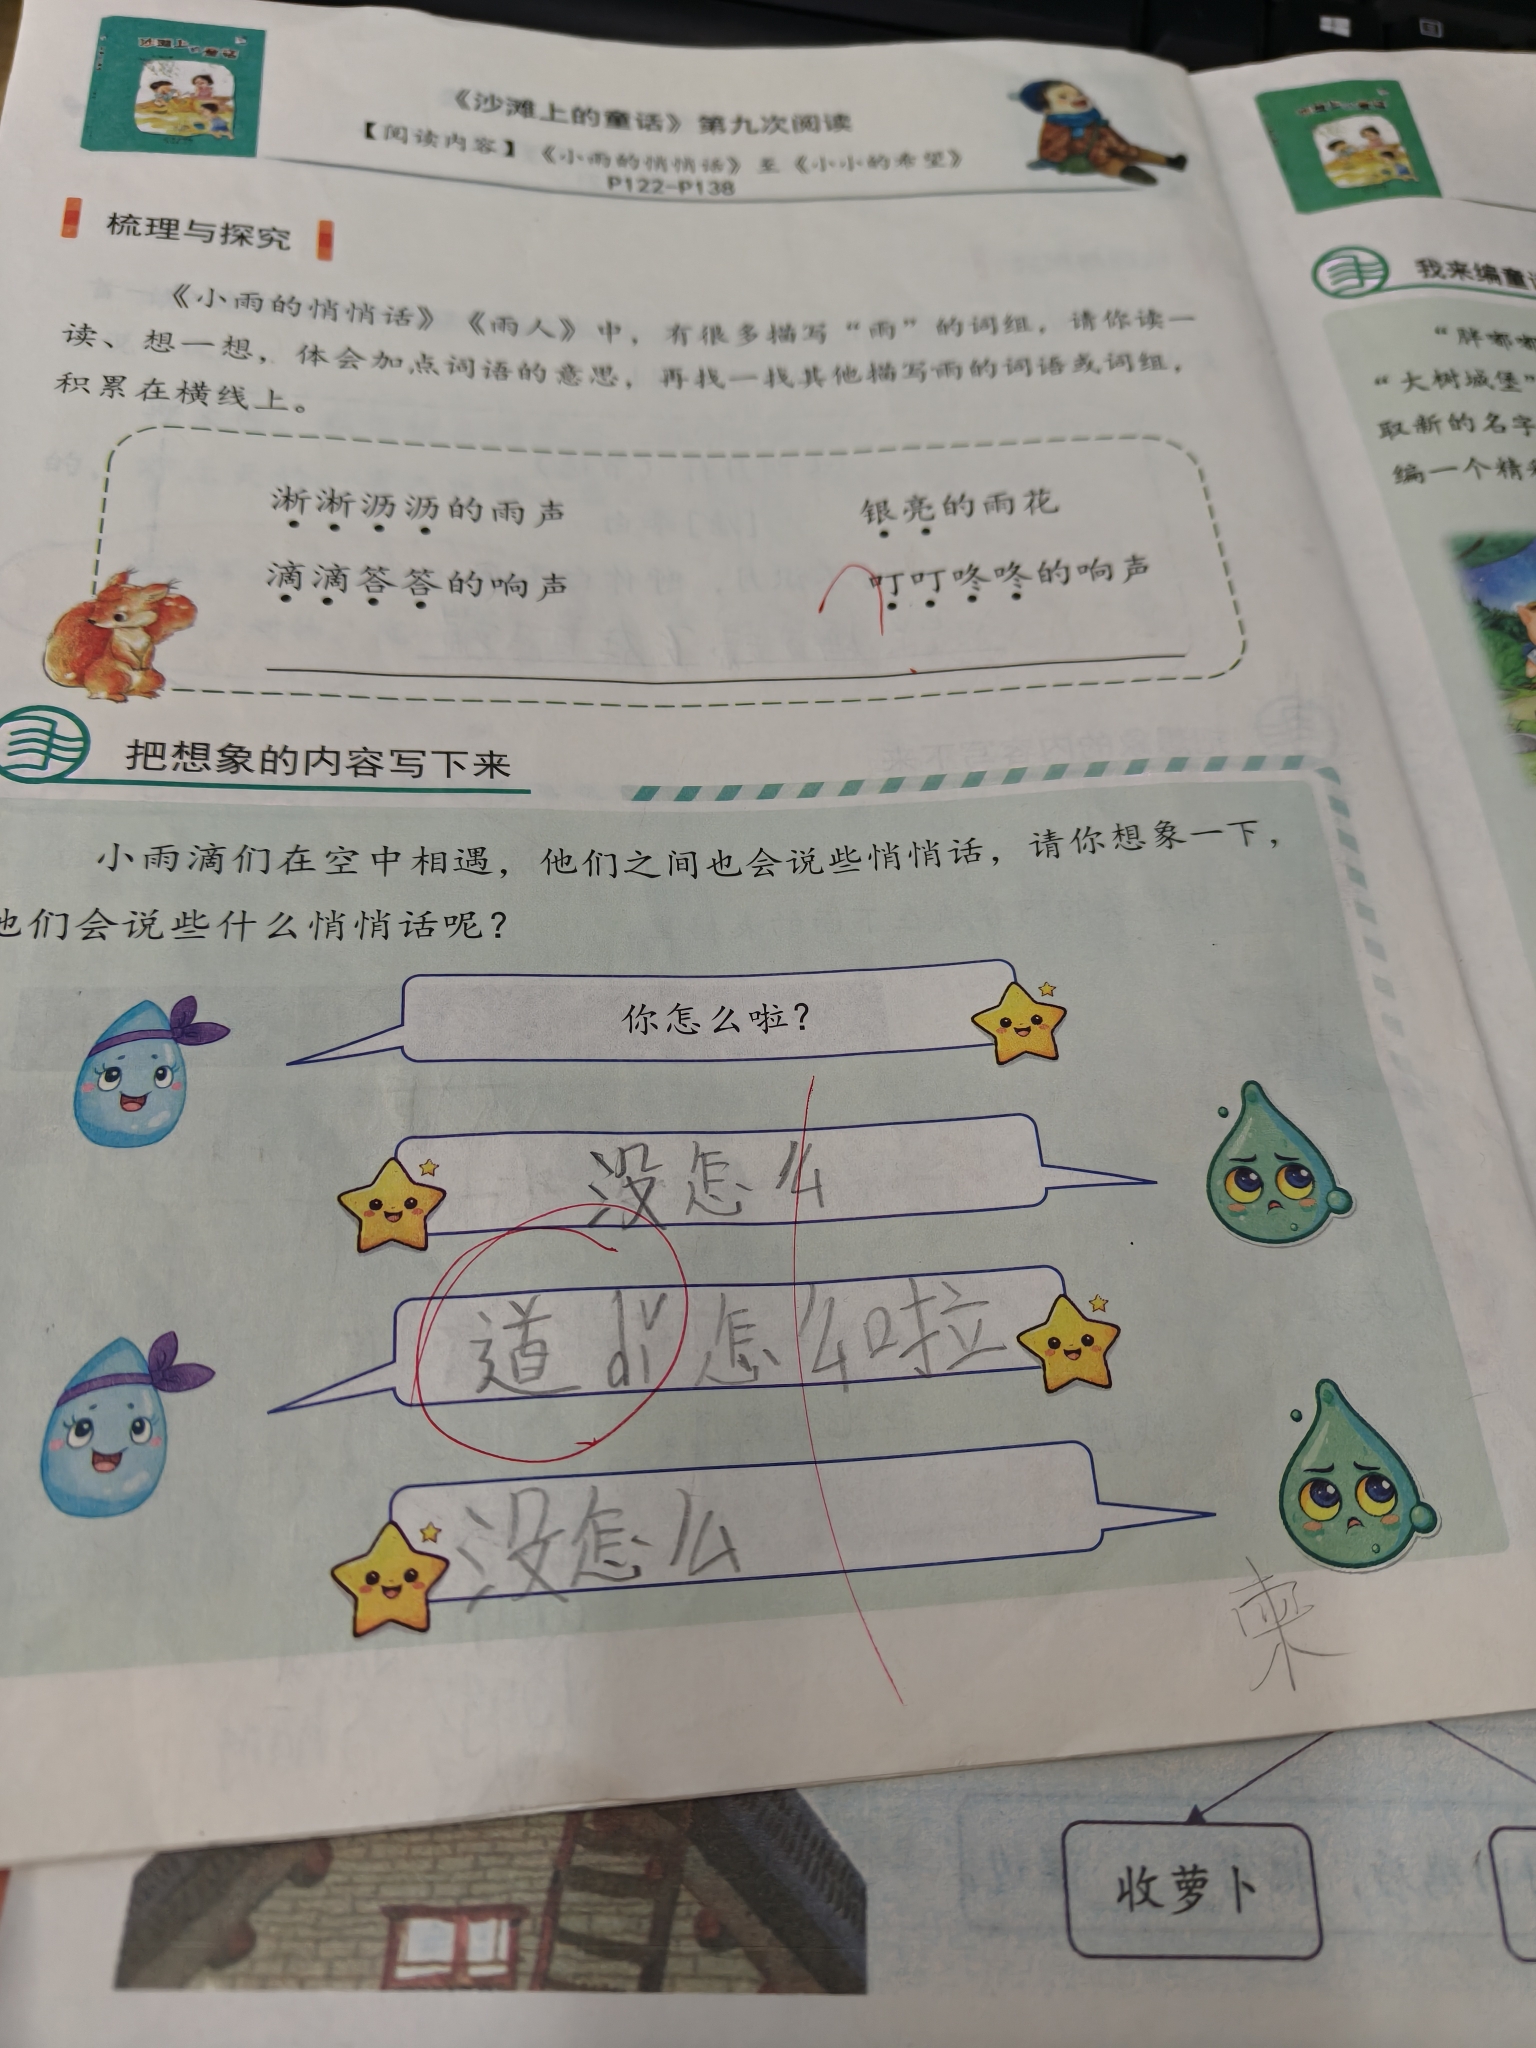 沙滩上的童话
《沙滩上的童话》第九次阅读
【阅读内容】《小雨的悄悄话》至《小小的希望》
P122-P138
梳理与探究
《小雨的悄悄话》《雨人》中，有很多描写“雨”的词组，请你读一
读、想一想，体会加点词语的意思，再找一找其他描写雨的词语或词组，
积累在横线上。
淅淅沥沥的雨声 银亮的雨花
滴滴答答的响声 叮叮咚咚的响声
把想象的内容写下来
小雨滴们在空中相遇，他们之间也会说些悄悄话，请你想象一下，
他们会说些什么悄悄话呢？
你怎么啦？
没怎么
道dǐ怎么啦
没怎么
我来编童话
“胖嘟嘟
“大树城堡”
取新的名字
编一个精彩
收萝卜